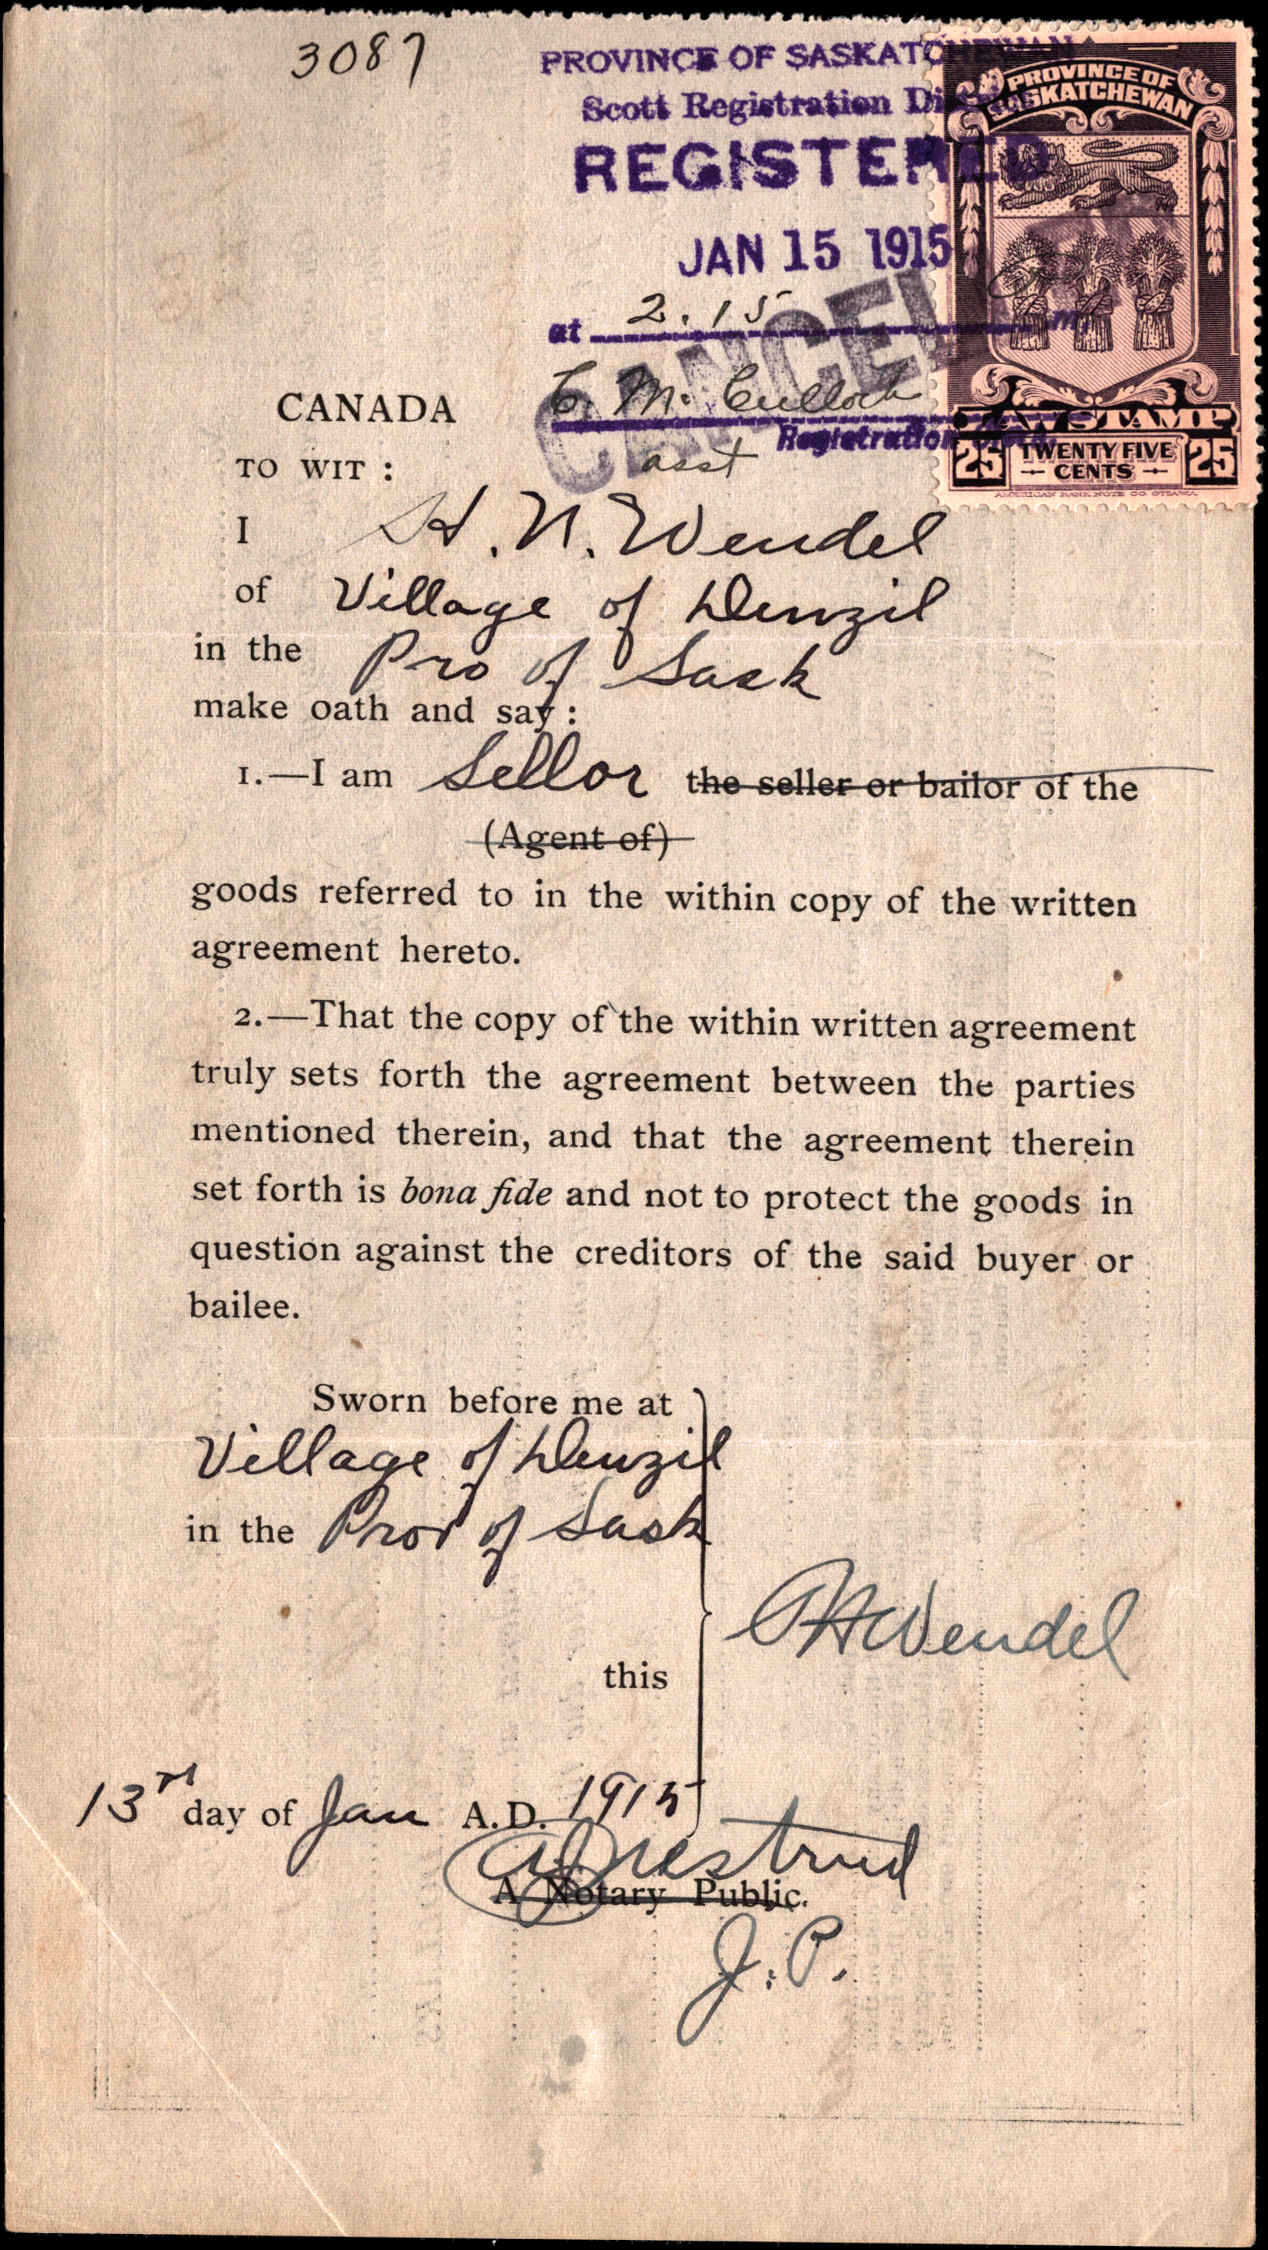 3087
PROVINCE OF SASKATCHEWAN
Scott Registration
REGISTERED
JAN 15 1915
at 2.15 m.
CANCEL
C. M. Culloch
Registration
asst
PROVINCE OF
SASKATCHEWAN
LAW STAMP
25 TWENTY FIVE CENTS 25
AMERICAN BANK NOTE CO. OTTAWA
CANADA
TO WIT :
I H. N. Wendel
of Village of Denzil
in the Pro of Sask
make oath and say :
1.—I am Sellor the seller or bailor of the
(Agent of)
goods referred to in the within copy of the written
agreement hereto.
2.—That the copy of the within written agreement
truly sets forth the agreement between the parties
mentioned therein, and that the agreement therein
set forth is bona fide and not to protect the goods in
question against the creditors of the said buyer or
bailee.
Sworn before me at
Village of Denzil
in the Prov of Sask
Wendel
this
13rd day of Jan A.D. 1915
A Notary Public.
J.P.